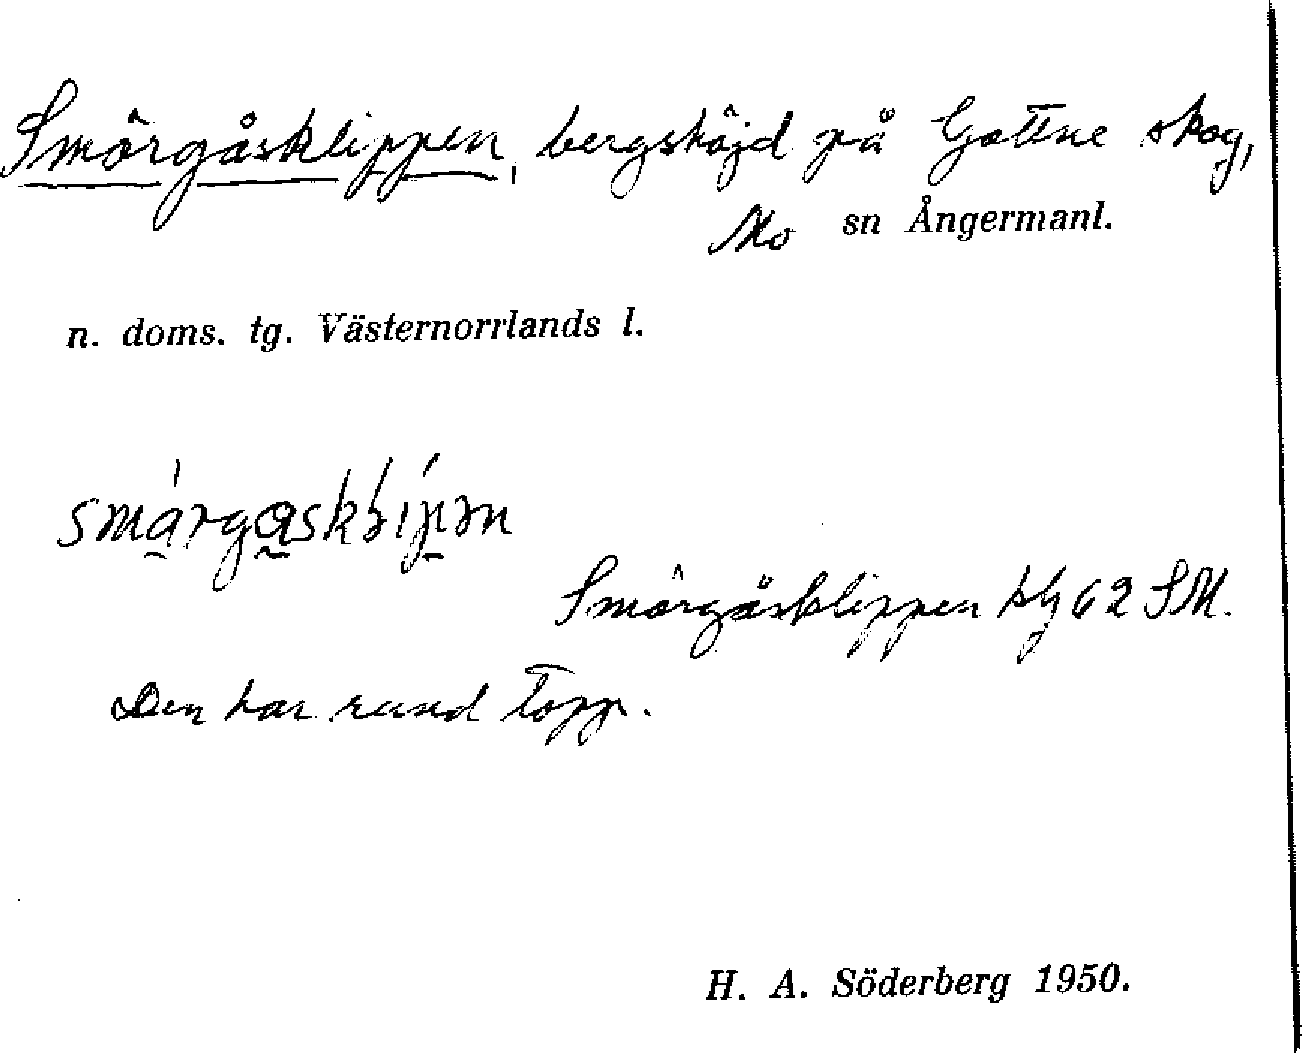 Smörgåsklippen, bergshöjd på Gottne skog,
Mo sn Ångermanl.
n. doms. tg. Västernorrlands l.
Smörgåsklippen 62 SM.
Den har rund topp.
H. A. Söderberg 1950.